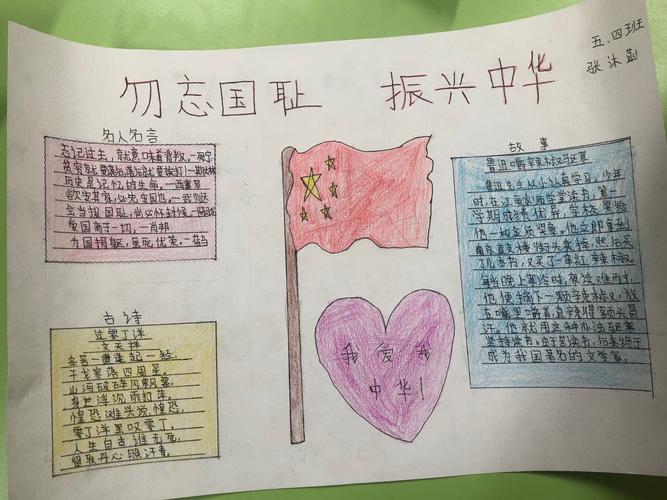 五.四班
张沐
勿忘国耻 振兴中华
名人名言
忘记过去,就意味着背叛。—列宁
贫穷就要落后,落后就要挨打!—斯大林
历史是记忆的生命。—西塞罗
欲安其家,必先安国也。—武则天
生当报国耻,尚必怀封候。
爱国高于一切,—肖邦
为国捐躯,虽死优荣。—荷马
古诗
过零丁洋
文天祥
辛苦遭逢起一经,
干戈寥落四周星。
山河破碎风飘絮,
身世浮沉雨打萍。
惶恐滩头说惶恐,
零丁洋里叹零丁。
人生自古谁无死,
留取丹心照汗青。
我爱我
中华!
故事
鲁迅嚼辣椒驱寒
鲁迅先生从小认真学习。少年
时,在江南水师学堂读书,第一
学期成绩优异,学校奖给
他一枚金质奖章。他立即拿到
南京鼓楼街头卖掉,然后买
了几本书,又买了一串红辣椒。
每当晚上寒冷时,夜读难耐,
他便摘下一颗辣椒,放
在嘴里嚼着,直辣得额头冒
汗。他就用这种办法驱寒
坚持读书。由于苦读书,后来终于
成为我国著名的文学家。